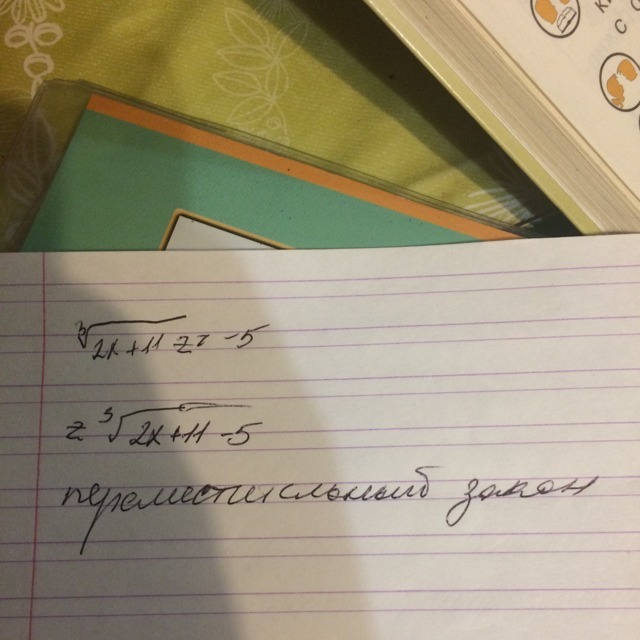 ∛2x+11 z² -5
z ³√2x+11 -5
переместительный закон